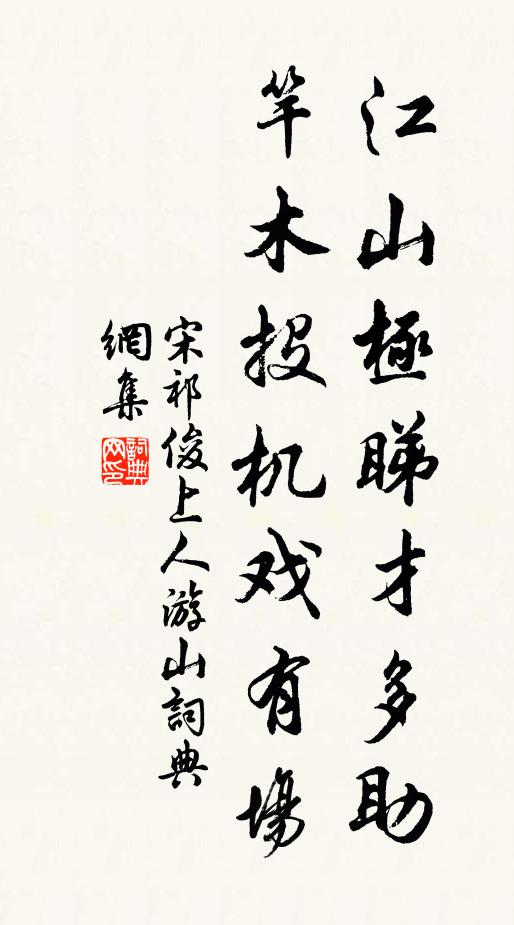 江山極睇才多助
竿木投机戏有場
宋祁俊上人游山詞典
網集
詞典
网印